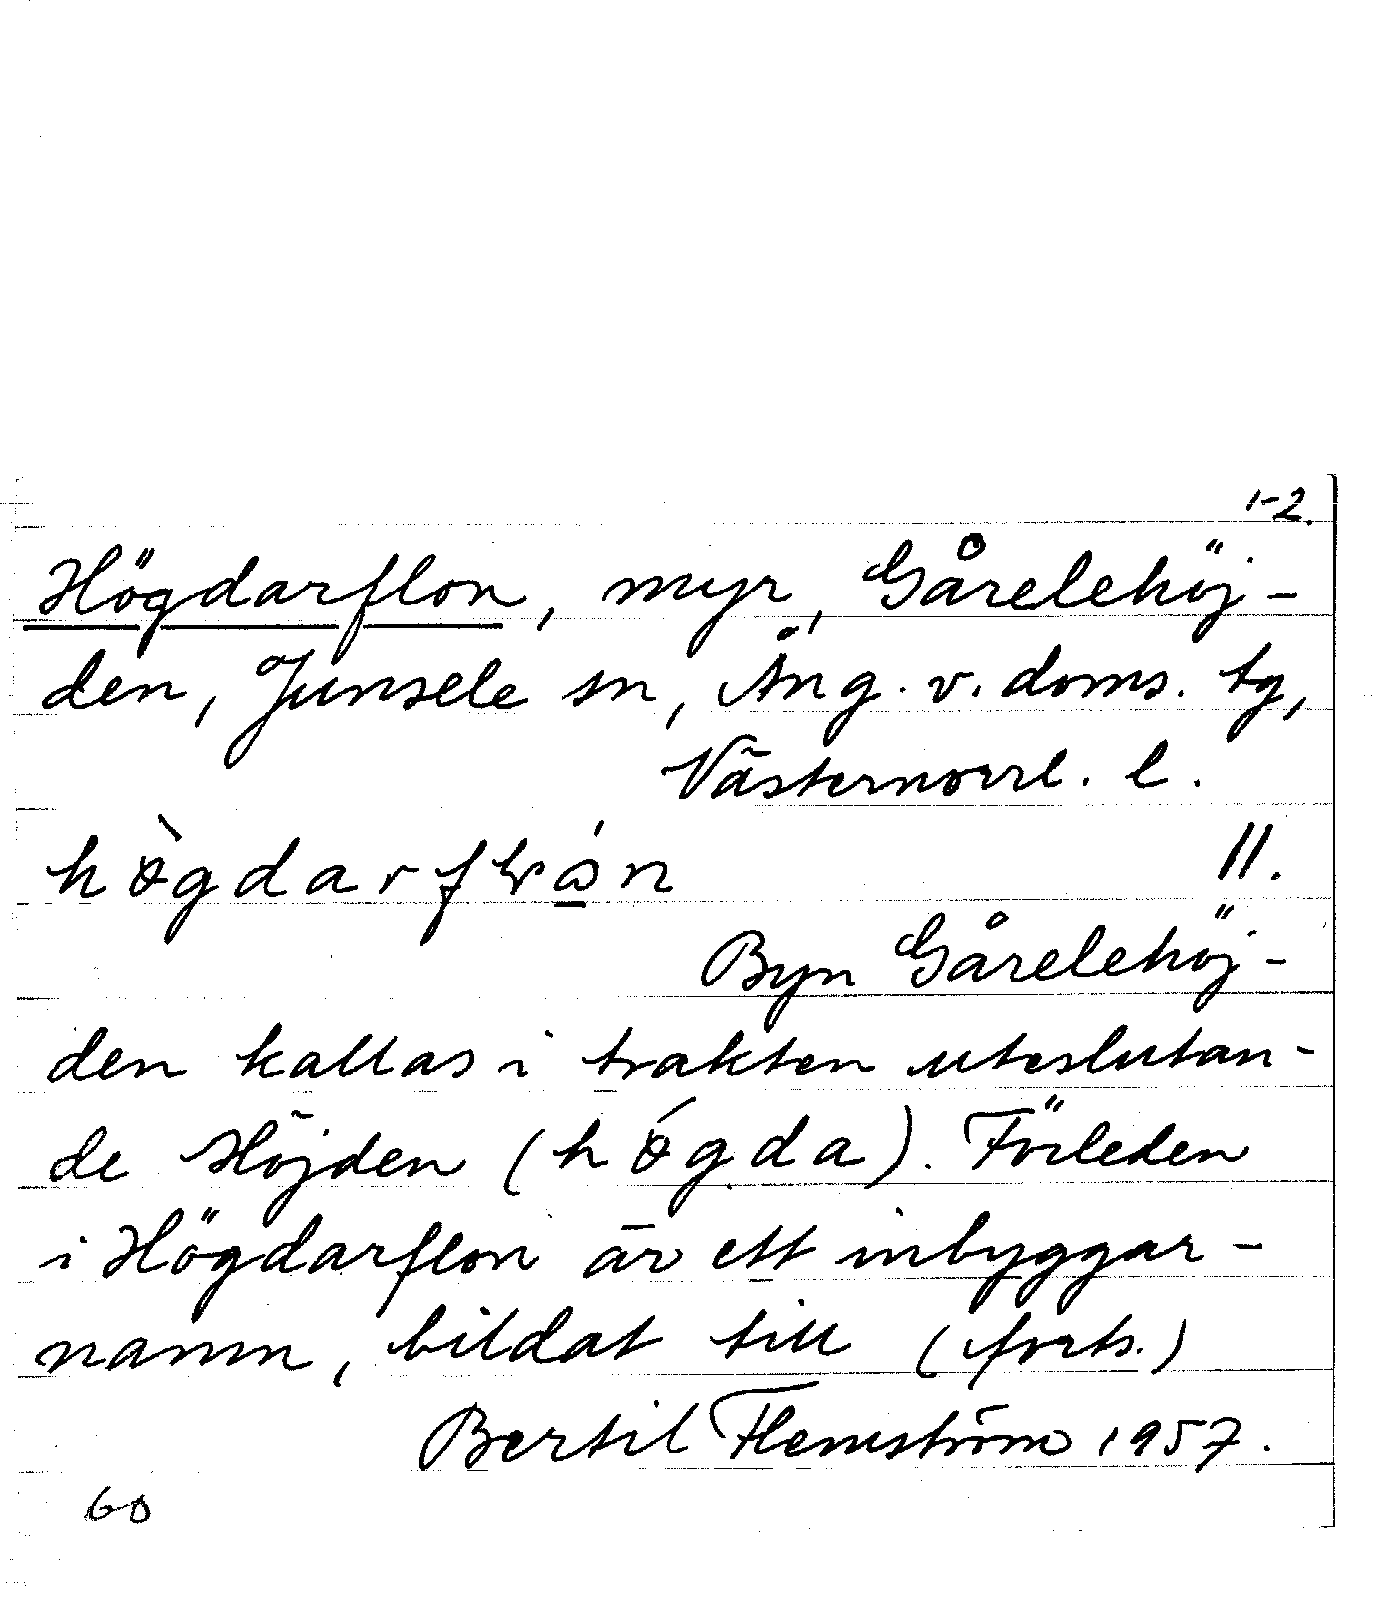 1-2.
Högdarflon, myr, Gårelehöj-
den, Junsele sn, Ång. v. doms. tg,
Västernorrl. l.
II.
Byn Gårelehöj-
den kallas i trakten uteslutan-
de Höjden (hǿgda). Förleden
i Högdarflon är ett inbyggar-
namn, bildat till (forts.)
Bertil Flemström 1957.
60